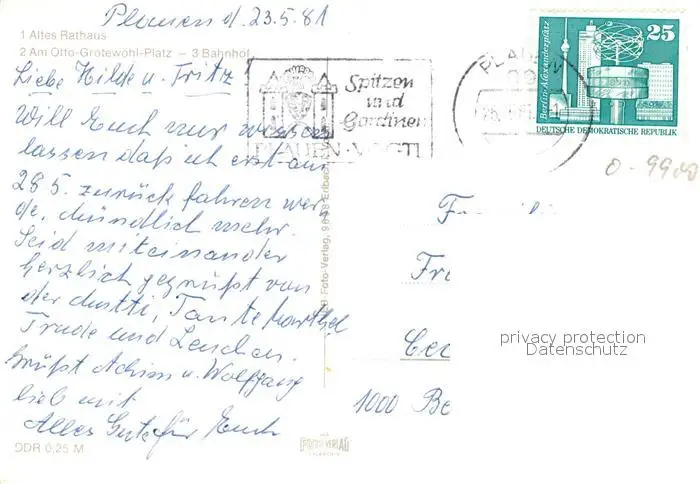 Plauen d. 23.5.81
1 Altes Rathaus
2 Am Otto-Grotewohl-Platz – 3 Bahnhof
Liebe Hilde u. Fritz!
Will Euch nur wissen
lassen daß ich erst am
28 5. zurück fahren wer
de. Mündlich mehr.
Seid miteinander
herzlich gegrüßt von
der Mutti, Tante
Trude und Lenchen.
Grüßt Achim u. Wolfgang
lieb mit
Alles Gute für Euch
DDR 0,25 M
Spitzen
und
Gardinen
PLAUEN · VOGTL
PLAUEN
Berlin-Alexanderplatz
25
DEUTSCHE DEMOKRATISCHE REPUBLIK
Foto-Verlag
FOTO-VERLAG
Fr
1000 Be
privacy protection
Datenschutz